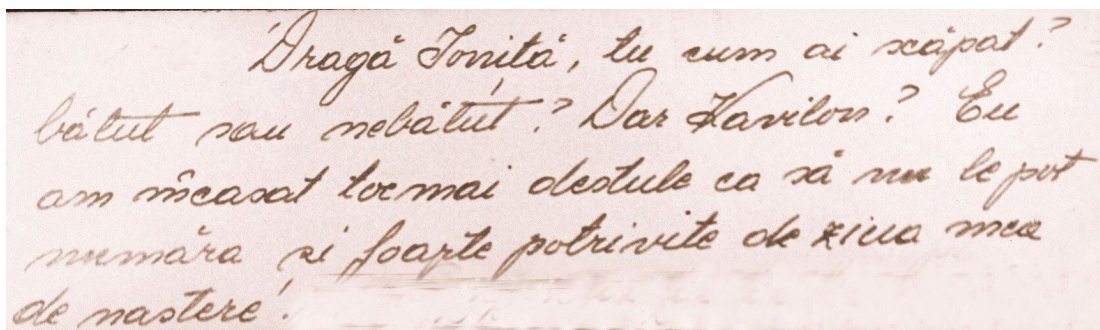 Dragă Ioniță, tu cum ai scăpat?
bătut sau nebătut? Dar Kavilon? Eu
am încasat tocmai destule ca să nu le pot
număra și foarte potrivite de ziua mea
de nastere!